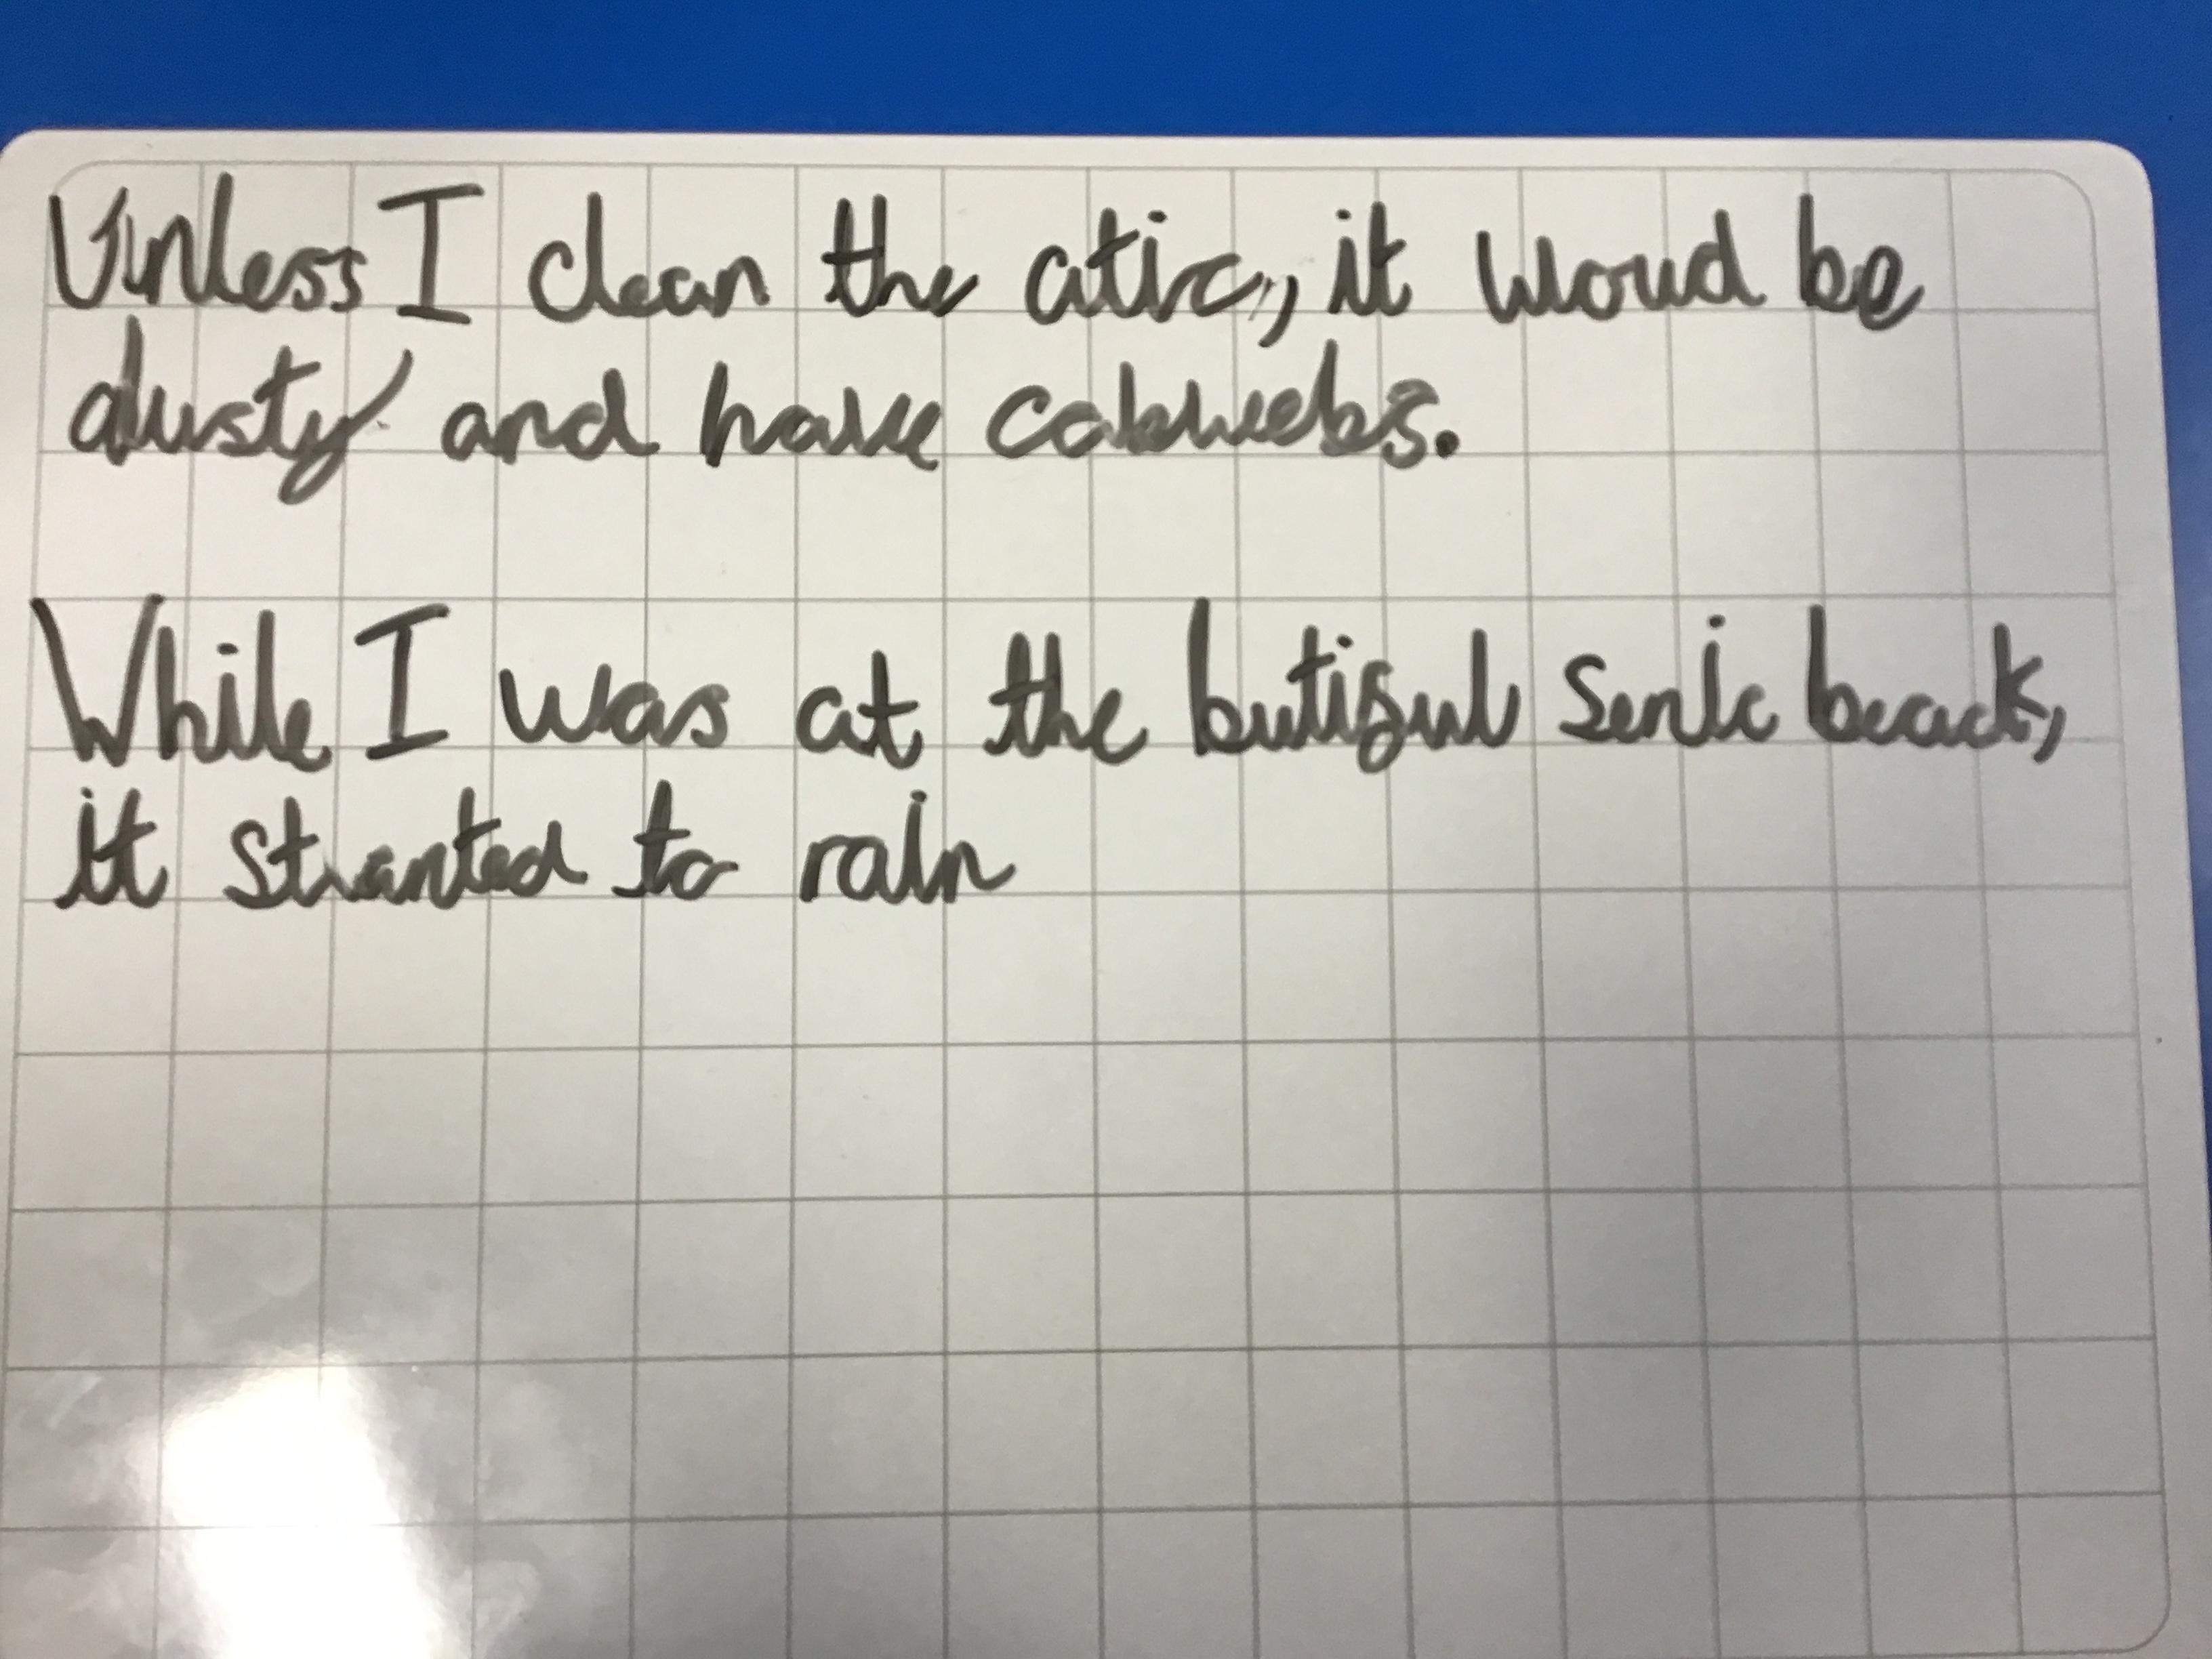 Unless I clean the atic, it woud be
dusty and have cobwebs.
While I was at the butiful senic beack,
it stranted to rain